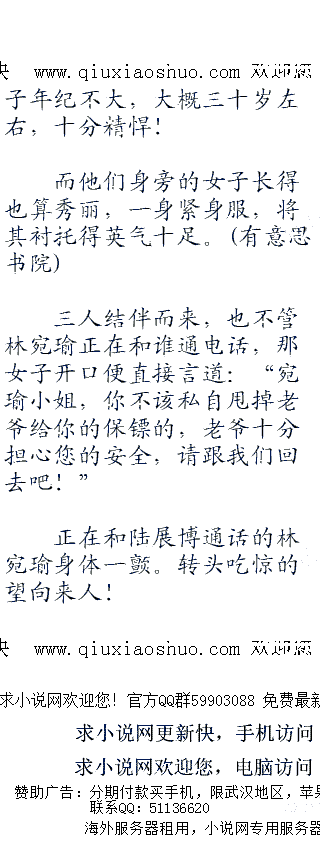 快 www.qiuxiaoshuo.com 欢迎您
子年纪不大，大概三十岁左
右，十分精悍！
而他们身旁的女子长得
也算秀丽，一身紧身服，将
其衬托得英气十足。(有意思
书院)
三人结伴而来，也不管
林宛瑜正在和谁通电话，那
女子开口便直接言道：“宛
瑜小姐，你不该私自甩掉老
爷给你的保镖的，老爷十分
担心您的安全，请跟我们回
去吧！”
正在和陆展博通话的林
宛瑜身体一颤。转头吃惊的
望向来人！
快 www.qiuxiaoshuo.com 欢迎您
求小说网欢迎您！官方QQ群59903088 免费最新
求小说网更新快，手机访问
求小说网欢迎您，电脑访问
赞助广告：分期付款买手机，限武汉地区，苹果
联系QQ：51136620
海外服务器租用，小说网专用服务器